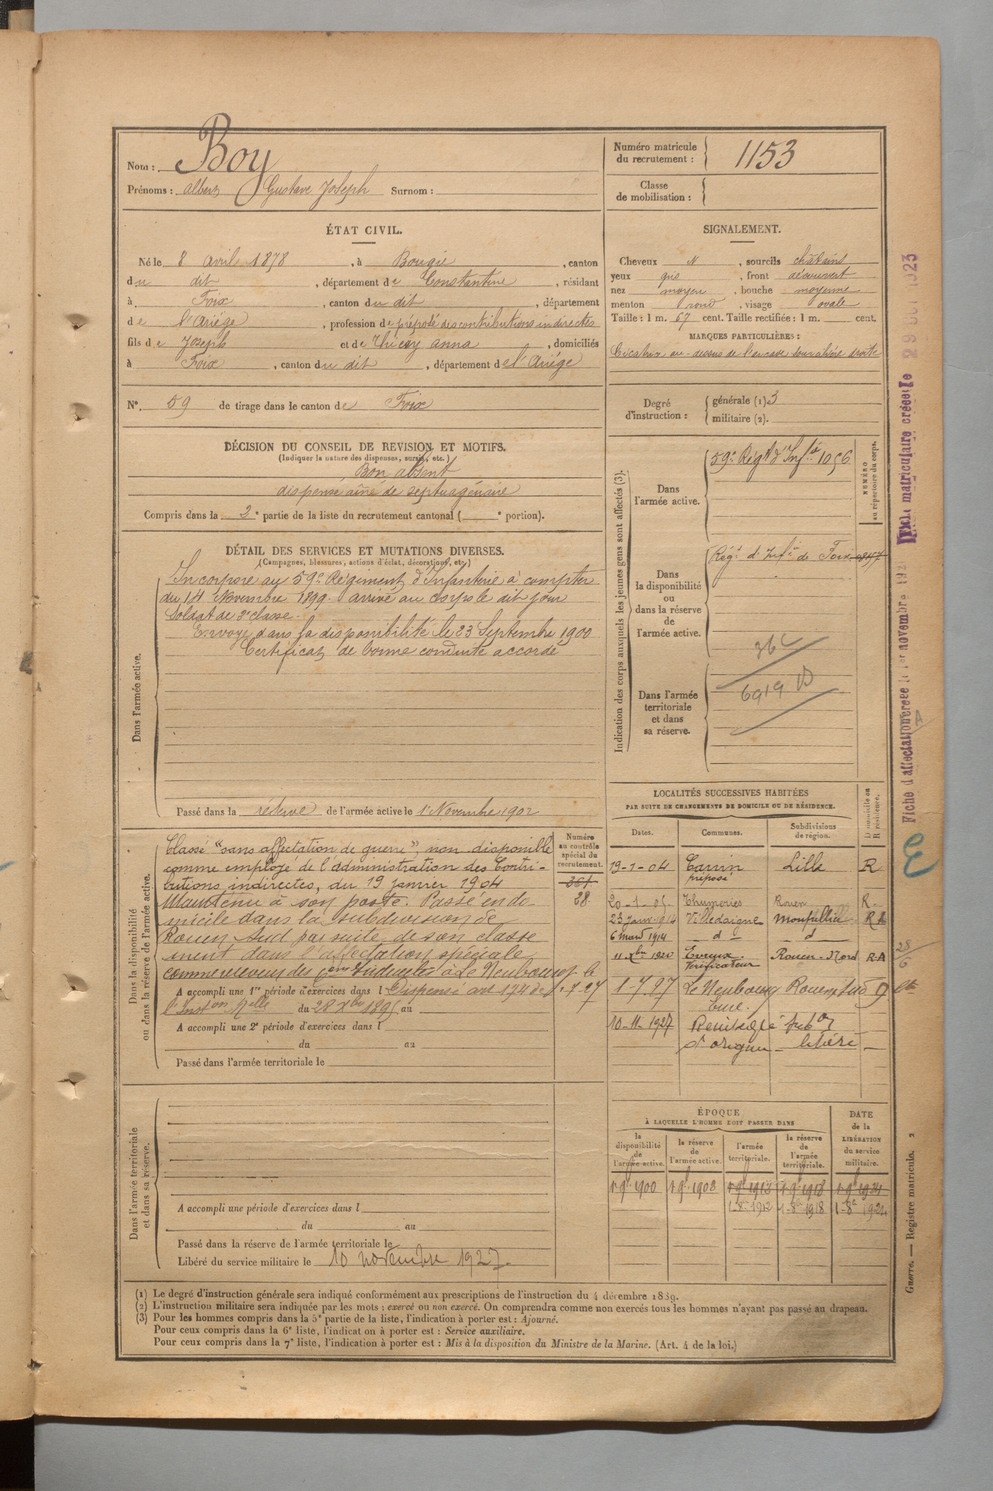 Nom : Boy
Prénoms : Albert Gustave Joseph Surnom :
Numéro matricule du recrutement : 1153
Classe de mobilisation :
ÉTAT CIVIL.
Né le 8 avril 1878, à Bougie, canton
du dit, département de Constantine, résidant
à Foix, canton du dit, département
de l'Ariége, profession de préposé des contributions indirectes
fils de Joseph et de Thiery anna, domiciliés
à Foix, canton du dit, département de l'Ariége
N° 59 de tirage dans le canton de Foix
DÉCISION DU CONSEIL DE REVISION ET MOTIFS.
(Indiquer la nature des dispenses, sursis, etc.)
Bon absent
dispensé aîné de septuagénaire
Compris dans la 2e partie de la liste du recrutement cantonal ( e portion).
DÉTAIL DES SERVICES ET MUTATIONS DIVERSES.
(Campagnes, blessures, actions d'éclat, décorations, etc.)
Dans l'armée active.
Incorporé au 59e Régiment d'Infanterie à compter
du 14 Novembre 1899 arrivé au corps le dit jour
Soldat de 2e classe.
Envoyé dans la disponibilité le 23 Septembre 1900
Certificat de bonne conduite accordé
Passé dans la réserve de l'armée active le 1 Novembre 1902
Dans la disponibilité
ou dans la réserve de l'armée active.
Numéro au contrôle spécial du recrutement.
361
38
Classé "sans affectation de guerre", non disponible
comme employé de l'administration des Contri-
butions indirectes, du 19 janvier 1904
Maintenu à son poste. Passé en do
micile dans la subdivision de
Rouen Sud par suite de son classe
ment dans l'affectation spéciale
à Le Neubourg le
A accompli une 1re période d'exercices dans l
Dispensé
du 28 Xbre 1895 au
A accompli une 2e période d'exercices dans l
du au
Passé dans l'armée territoriale le
Dans l'armée territoriale
et dans sa réserve.
A accompli une période d'exercices dans l
du au
Passé dans la réserve de l'armée territoriale le
Libéré du service militaire le 10 novembre 1927.
SIGNALEMENT.
Cheveux N, sourcils châtains
yeux gris, front découvert
nez moyen, bouche moyenne
menton rond, visage ovale
Taille : 1 m. 67 cent. Taille rectifiée : 1 m. cent.
MARQUES PARTICULIÈRES :
Cicatrice au-dessus de l'arcade sourcilière droite
Degré d'instruction : générale (1) 3
militaire (2).
Indication des corps auxquels les jeunes gens sont affectés (3).
NUMÉRO au répertoire du corps.
Dans l'armée active.
59e Régt d'Infie 1056
Dans la disponibilité ou dans la réserve de l'armée active.
Régt d'Infie de Foix
Dans l'armée territoriale et dans sa réserve.
6919
LOCALITÉS SUCCESSIVES HABITÉES
PAR SUITE DE CHANGEMENTS DE DOMICILE OU DE RÉSIDENCE.
Dates. Communes. Subdivisions de région. D domicile ou R résidence.
19-1-04 Carvin Lille R
préposé
20-1-05 Rouen R
23 Janv 1914 Montpellier R
6 mars 1914 d d
11 Xbre 1920 Evreux Rouen-Nord R
Vérificateur
1-7-27 Le Neubourg Rouen Sud D
Eure
10-11-1927 Réintégré subon
d'origine libéré
ÉPOQUE
À LAQUELLE L'HOMME DOIT PASSER DANS
DATE de la LIBÉRATION du service militaire.
la disponibilité de l'armée active. la réserve de l'armée active. l'armée territoriale. la réserve de l'armée territoriale.
1 9bre 1900 1 9bre 1902 1 9bre 1912 1 9bre 1918 1 9bre 1924
1-8-1912 1-8-1918 1-8-1924
(1) Le degré d'instruction générale sera indiqué conformément aux prescriptions de l'instruction du 4 décembre 1889.
(2) L'instruction militaire sera indiquée par les mots : exercé ou non exercé. On comprendra comme non exercés tous les hommes n'ayant pas passé au drapeau.
(3) Pour les hommes compris dans la 5e partie de la liste, l'indication à porter est : Ajourné.
Pour ceux compris dans la 6e liste, l'indication à porter est : Service auxiliaire.
Pour ceux compris dans la 7e liste, l'indication à porter est : Mis à la disposition du Ministre de la Marine. (Art. 4 de la loi.)
Guerre. — Registre matricule. 2
Fiche matriculaire créée le 29 OCT 1923
28/6